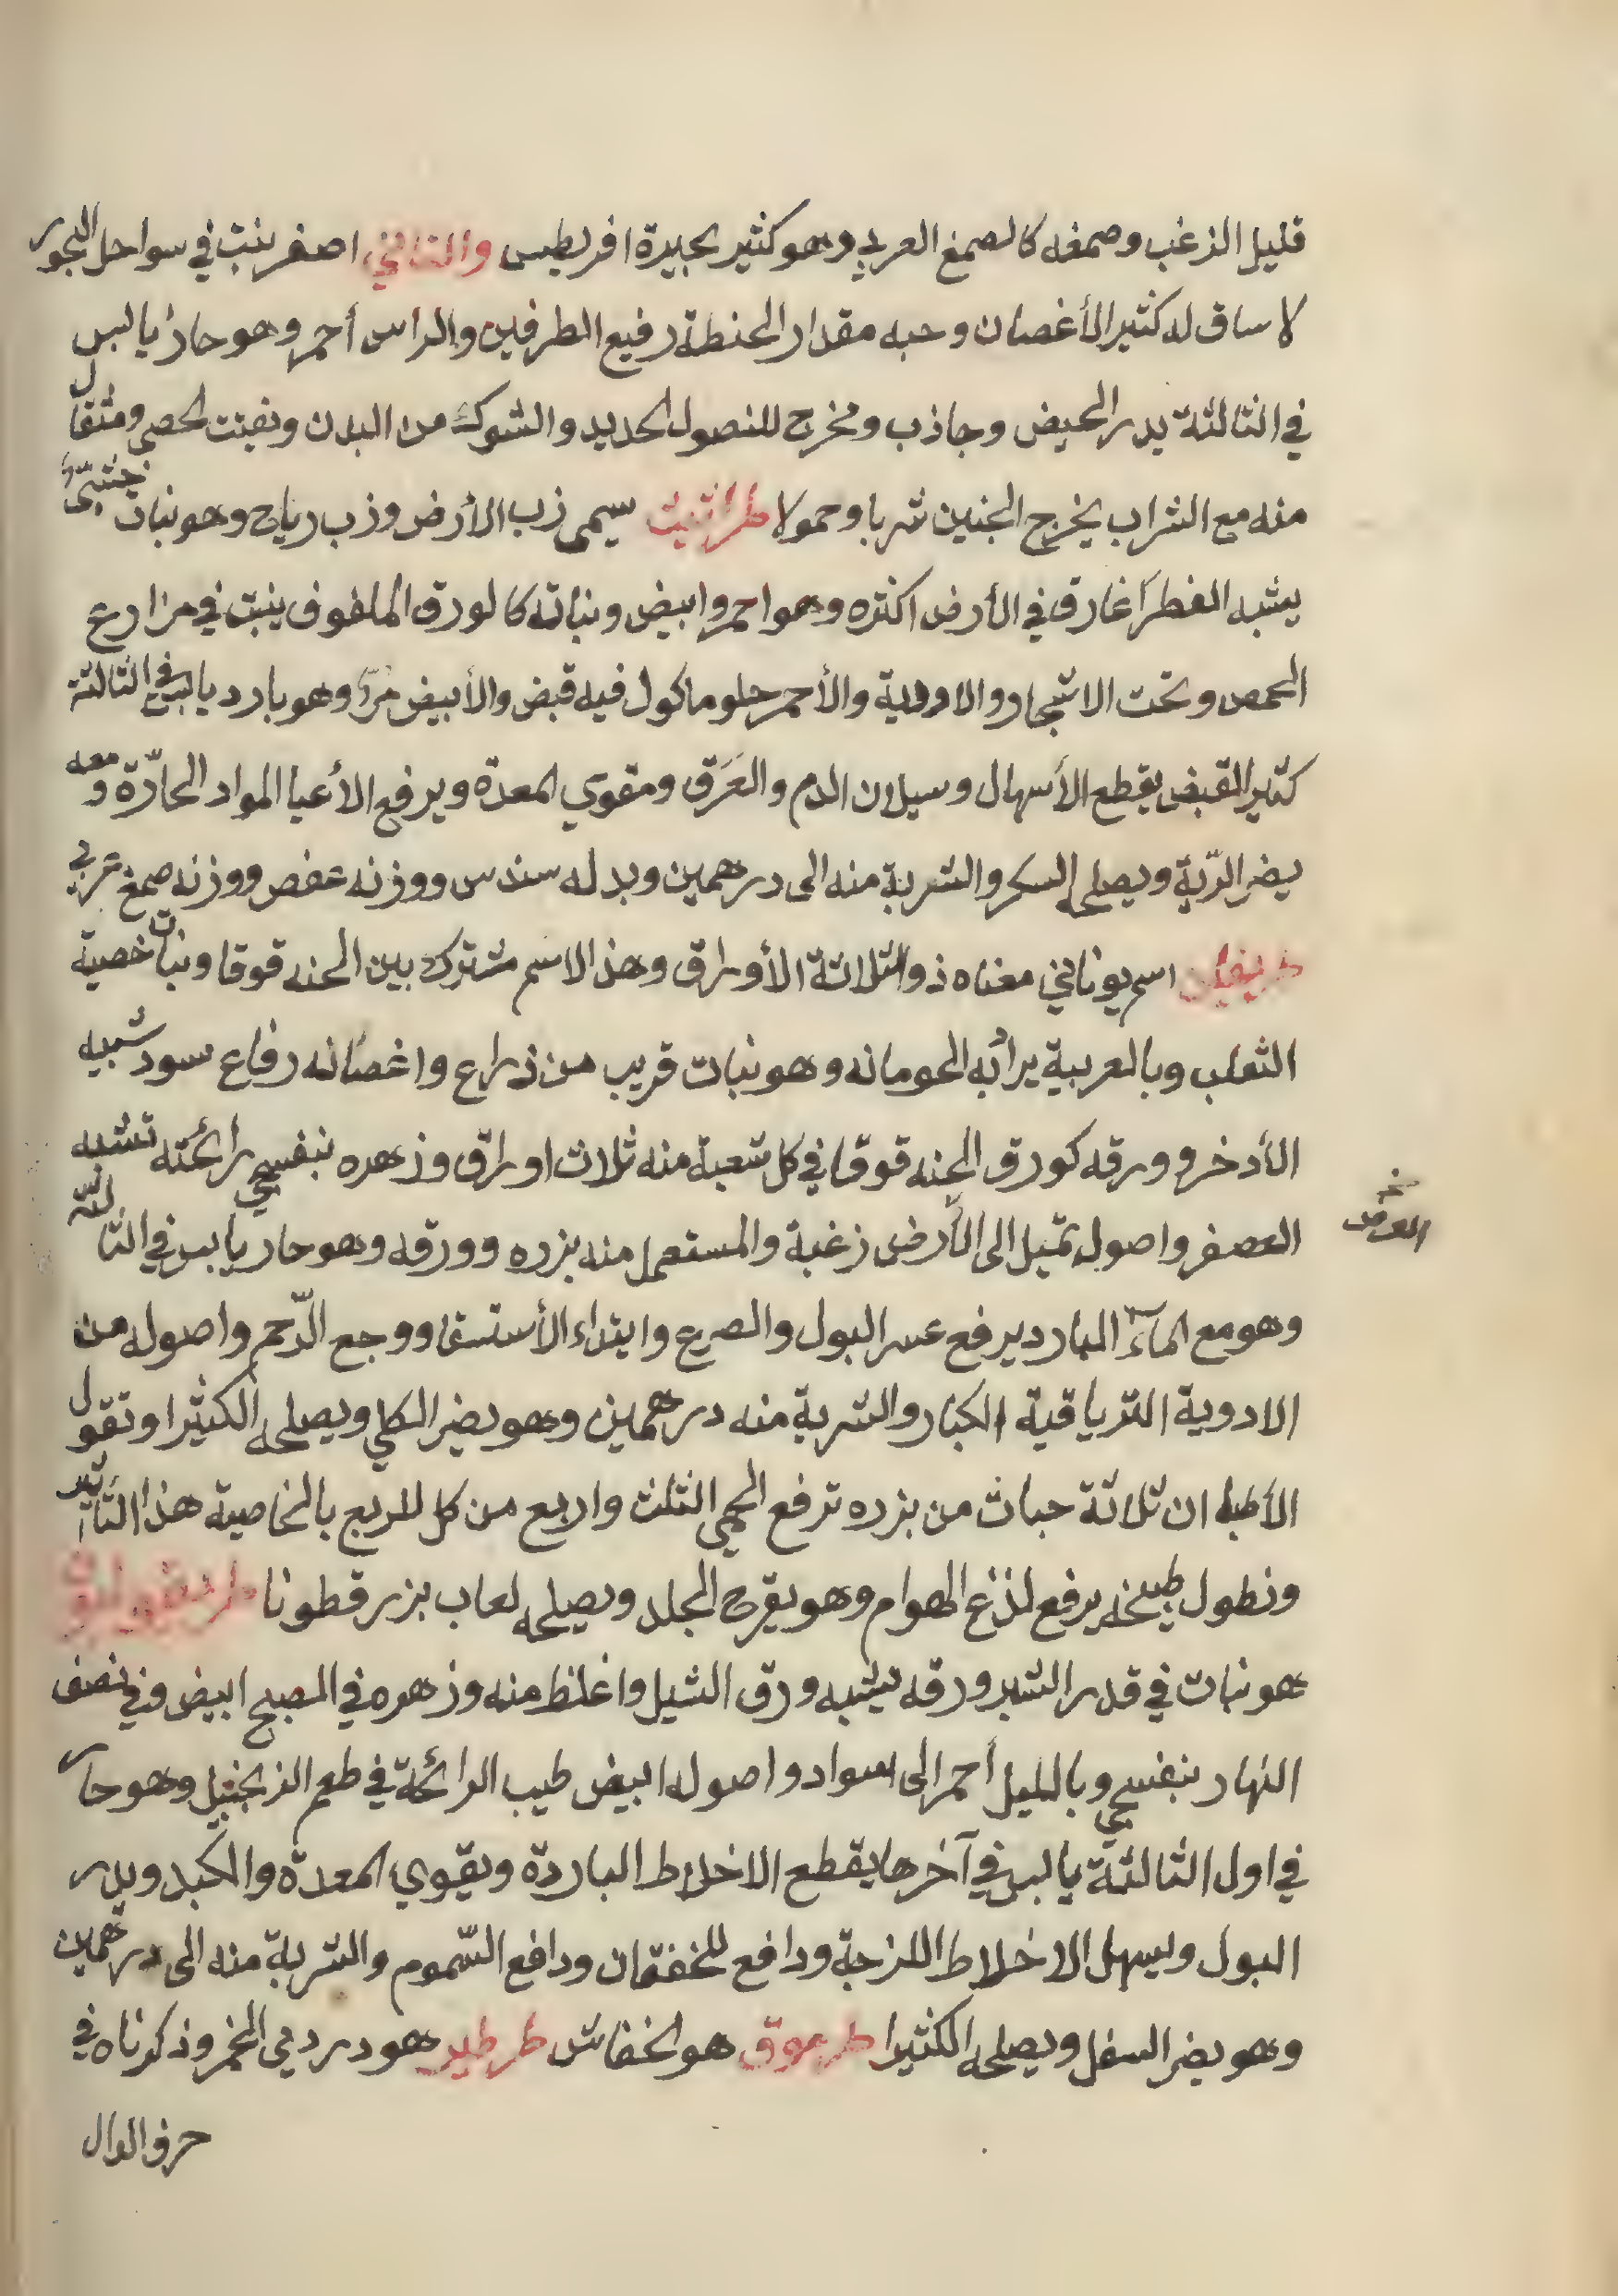 قليل الزغب وصمغه كالصمغ العربي وهو كثير بجبيرة افريطس والثاني اصفر ينبت في سواحل البحور
لا ساق له كثير الأغصان وحبه مقدار الحنطة رفيع الطرفين والراس أحمر وهو حارّ يابس
في الثالثة يدر الحيض وجاذب ومخرج للنصول الحديد والشوك من البدن ونفتت الحصى ومثقال
منه مع الشراب يخرج الجنين شربا وحمولا طراثيث يسمى زب الأرض وزب رياح وهو نبات خشبيّ
يشبه الفطر غارق في الأرض اكثره وهو احمر وابيض ونباته كالورق الملفوف ينبت في مزارع
الحمص وتحت الاشجار والاودية والأحمر حلو ماكول فيه قبض والأبيض مرّ وهو بارد يابس في الثالثة
كثير القبض يقطع الأسهال وسيلان الدم والعَرَق ومقوي المعدة ويرفع الأعيا المواد الحادّة ومعه
يضر الرّية ويصلحه السكر والشربة منه الى درهمين وبدله سندس ووزنه عفص ووزنه صمغ عربي
طريفلن اسم يوناني معناه ذو الثلاثة الأوراق وهذا الاسم مشترك بين الحندقوقا ونبات خصية
الثعلب وبالعربية يراد به الحومانه وهو نبات قريب من ذراع واغصانه رفاع سود شبيه
الأدخر وورقه كورق الحندقوقا في كل شعبة منه ثلاث اوراق وزهره بنفسجي رائحته تشبه
العصفر واصوله تميل الى الأرض زغبة والمستعمل منه بزره وورقه وهو حار يابس في الثالثة
وهو مع المآء البارد يرفع عسر البول والصرع وابتداء الأستسقا ووجع الرّحم واصوله من
الادوية الترياقية الكبار والشربة منه درهمين وهو يضر الكلي ويصلحه الكثيرا وتقول
الأطبا ان ثلاثة حبات من بزره ترفع الحمى الثلث واربع من كل للربع بالخاصية هذا التأثير
ونطول طبيخه يرفع لذغ الهوام وهو يقرح الجلد ويصلحه لعاب بزر قطونا
هو نبات في قدر الشبر ورقه يشبه ورق الثيل واغلظ منه وزهره في الصبح ابيض وفي نصف
النهار بنفسجي وبالليل أحمر الى السواد واصوله ابيض طيب الرائحة في طعم الزنجبيل وهو حار
في اول الثالثة يابس في آخرها يقطع الاخلاط الباردة ويقوي المعدة والكبد ويدر
البول ويسهل الاخلاط اللزجة ودافع للخفقان ودافع السّموم والشربة منه الى درهمين
وهو يضر السفل ويصلحه الكثيرا طرموق هو الخفاش طرطير هو دردي الخمر وذكرناه في
حرف الدال